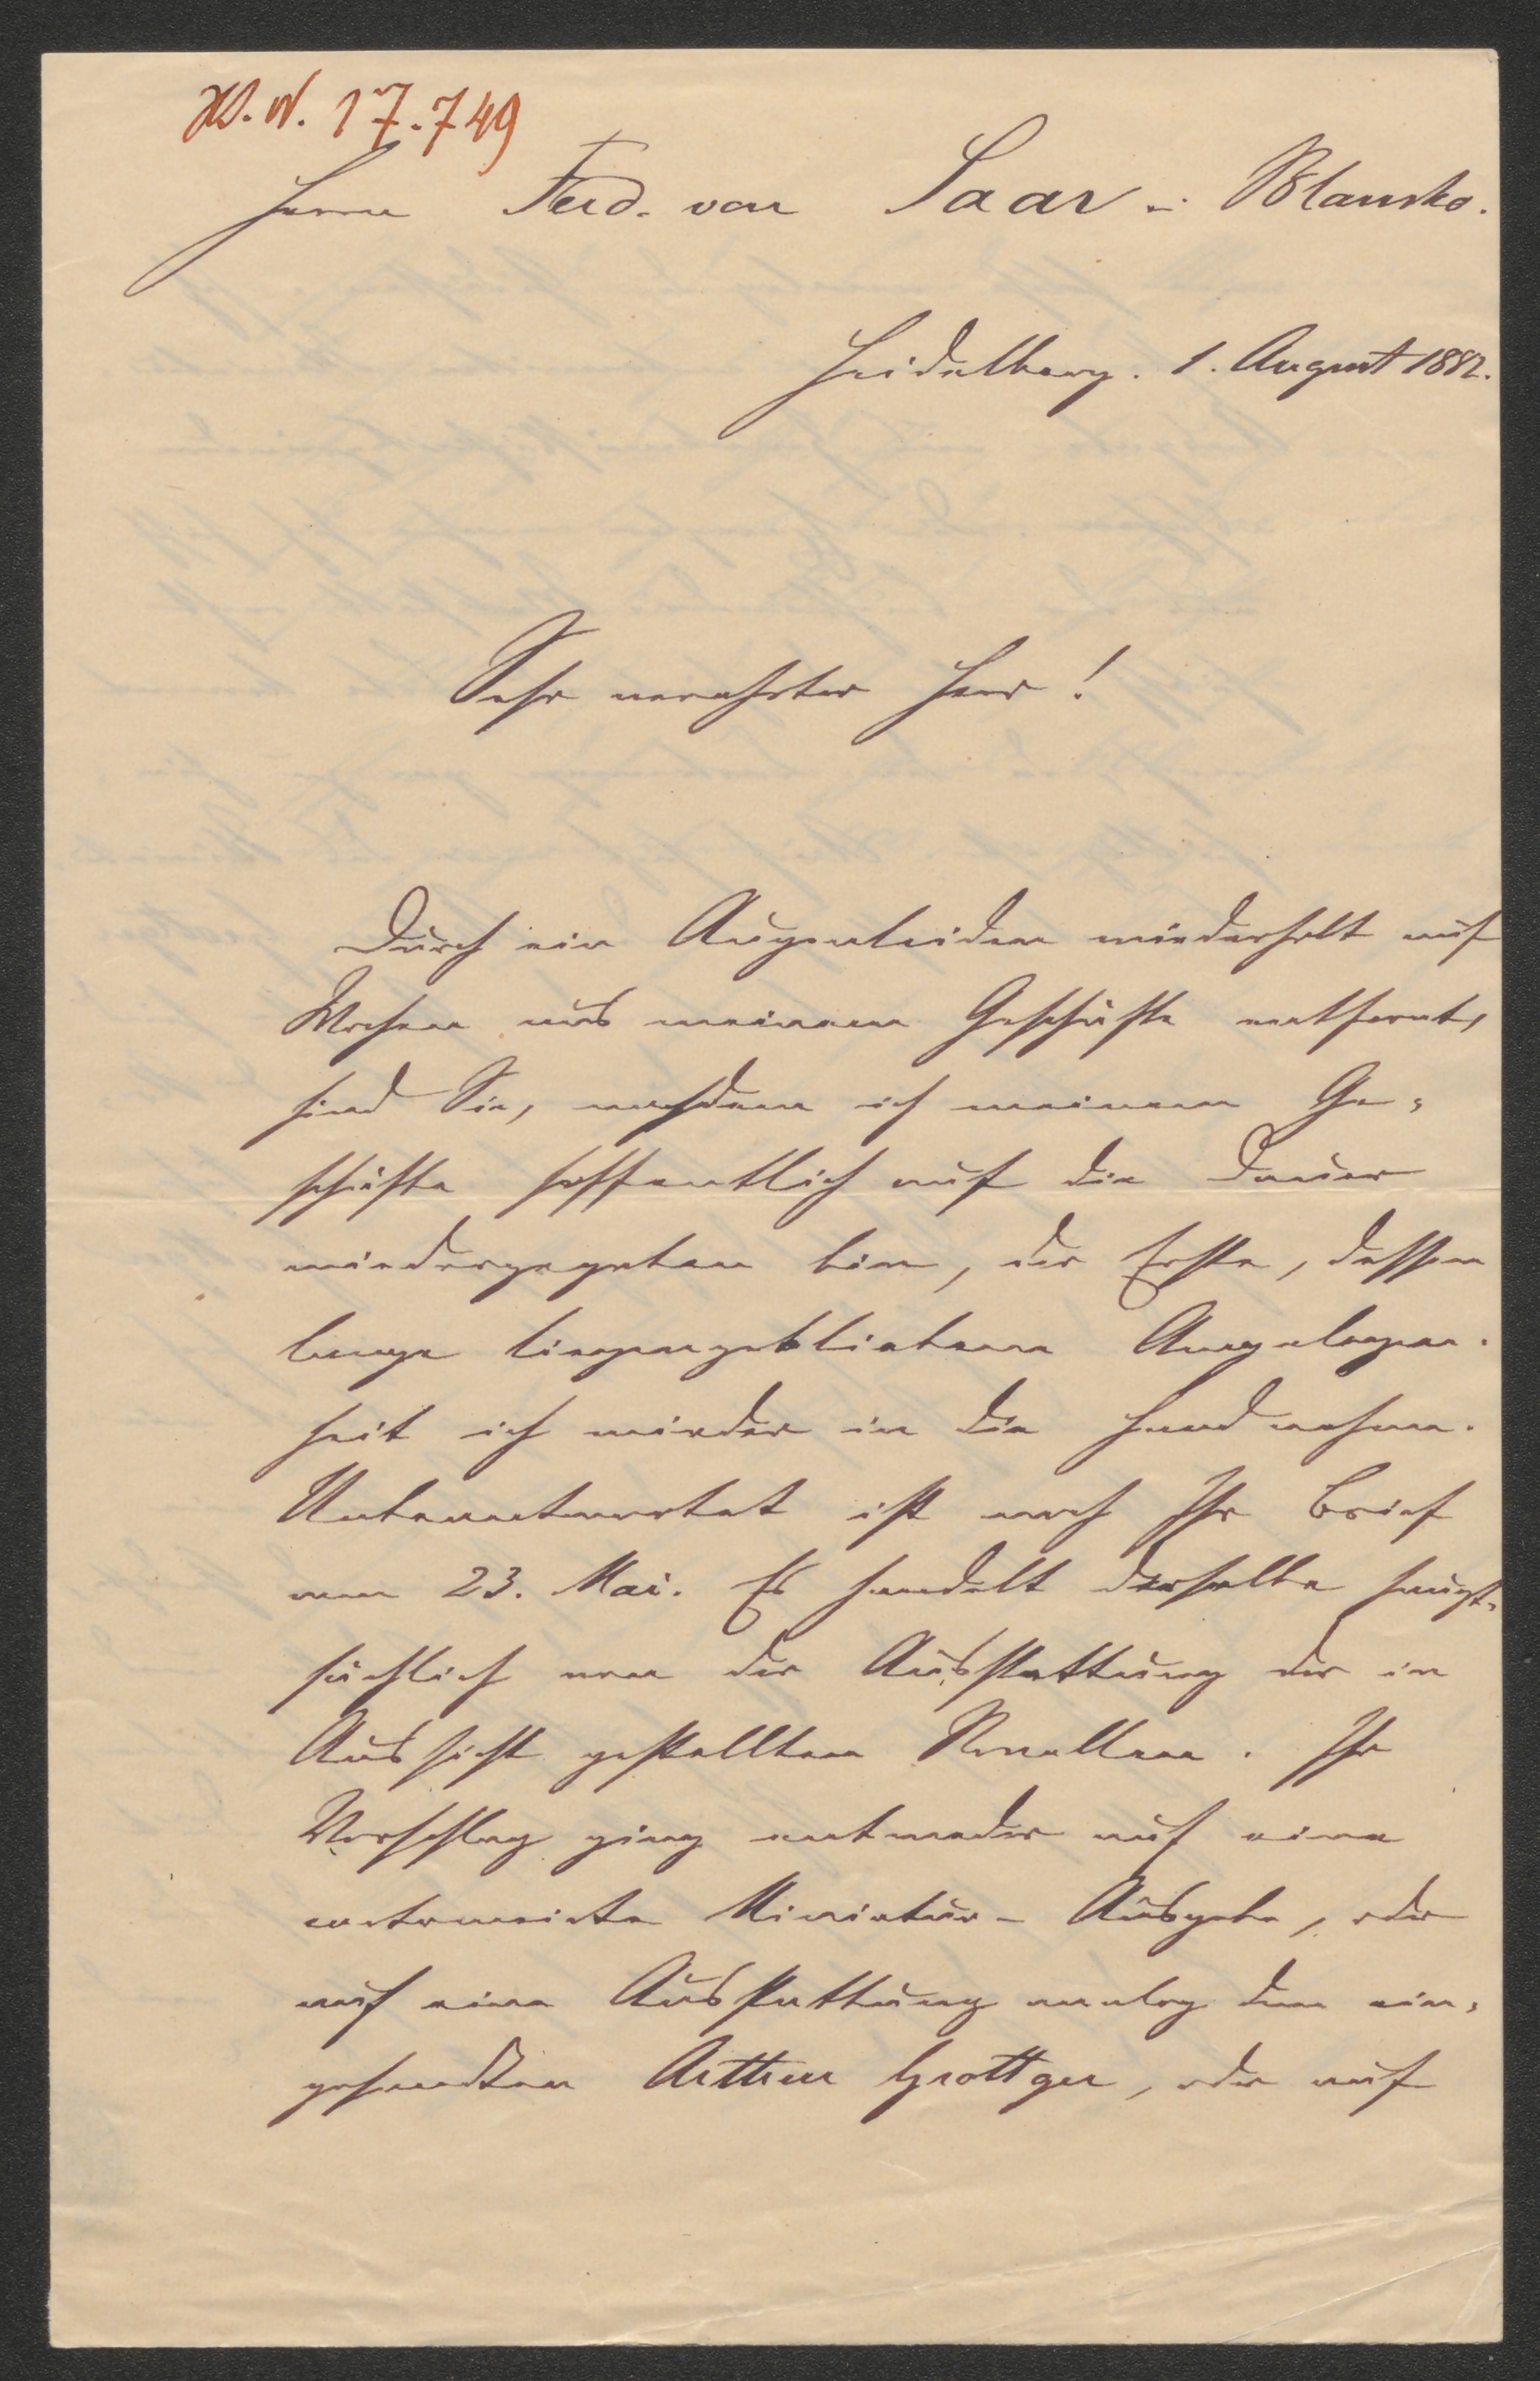 H.N. 17.749
Herrn Ferd. von Saar - Blansko.
Heidelberg. 1. August 1882.
Sehr verehrter Herr!
Durch ein Augenleiden wiederholt auf
Wochen aus meinem Geschäfte entfernt,
sind Sie, nachdem ich meinem Ge-
schäfte hoffentlich auf die Dauer
wiedergegeben bin, der Erste, dessen
lange liegengebliebene Angelegen-
heit ich wieder in die Hand nehme.
Unbeantwortet ist noch Ihr Brief
vom 23. Mai. Es handelt derselbe haupt-
sächlich von der Ausstattung der in
Aussicht gestellten Novellen. Ihr
Vorschlag ging entweder auf eine
Miniatur-Ausgabe, oder
auf eine Ausstattung analog dem ein-
gesandten Arthur Grottger, oder auf